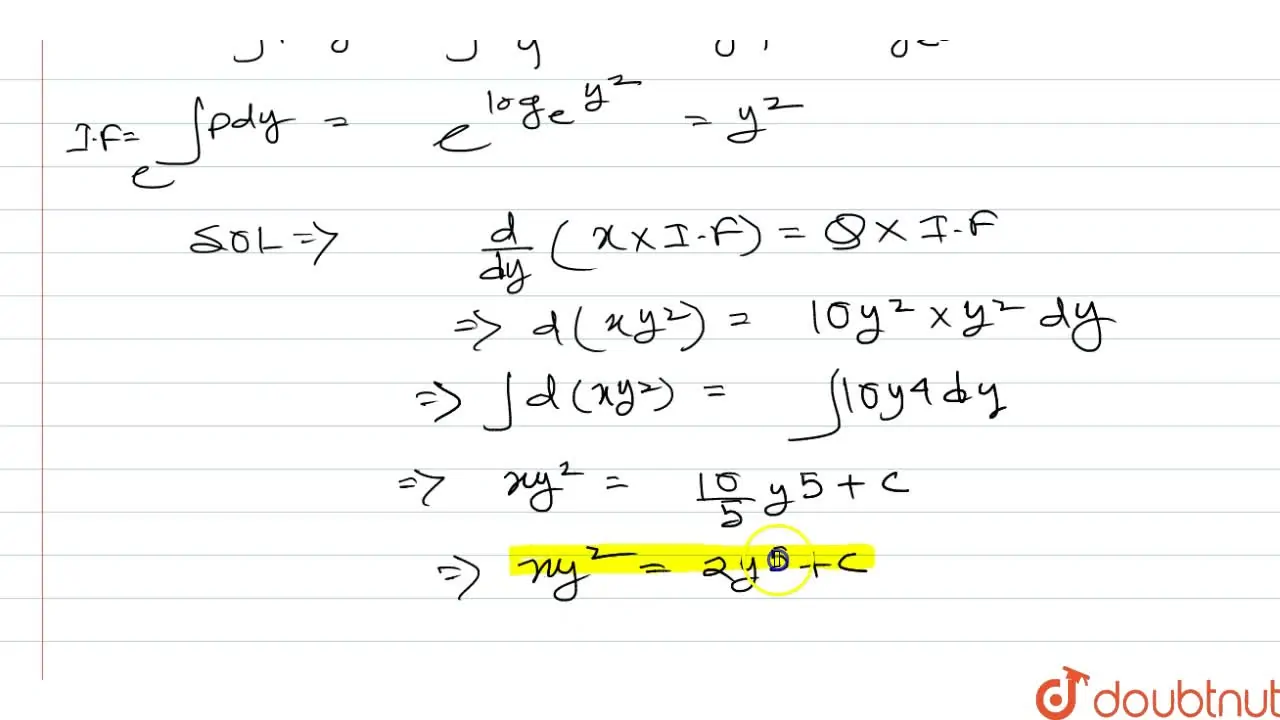 I.F = e^∫pdy = e^log_e y² = y²
SOL ⇒ d/dy (x × I.F) = Q × I.F
⇒ d(xy²) = 10y² × y² dy
⇒ ∫d(xy²) = ∫10y4 dy
⇒ xy² = 10/5 y5 + c
⇒ xy² = 2y⁵ + c
doubtnut